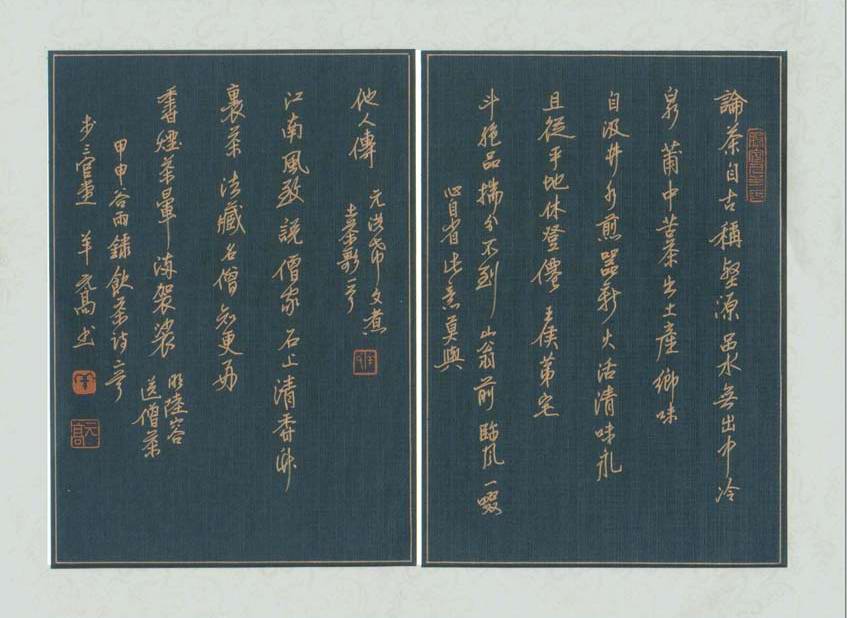 論茶自古稱壑源品水無出中泠
泉莆中苦茶出土產鄉味
自汲井水煎器新火活清味永
且從平地休登僊王侯第宅
斗絕品揣分不到山翁前臨風一啜
心自省此意莫與
他人傳 元洪希文煮
土茶歌一首
江南風致說僧家石上清香
裏茶法藏名僧知更
香煙茶暈滿袈裟 明陸容
送僧茶
甲申谷雨錄飲茶詩二首
步三官堂 羊